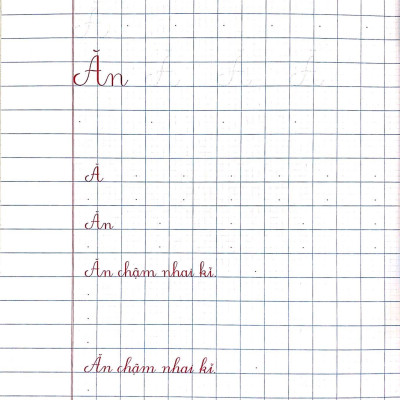 Ăn
Ă
Ăn
Ăn chậm nhai kĩ.
Ăn chậm nhai kĩ.